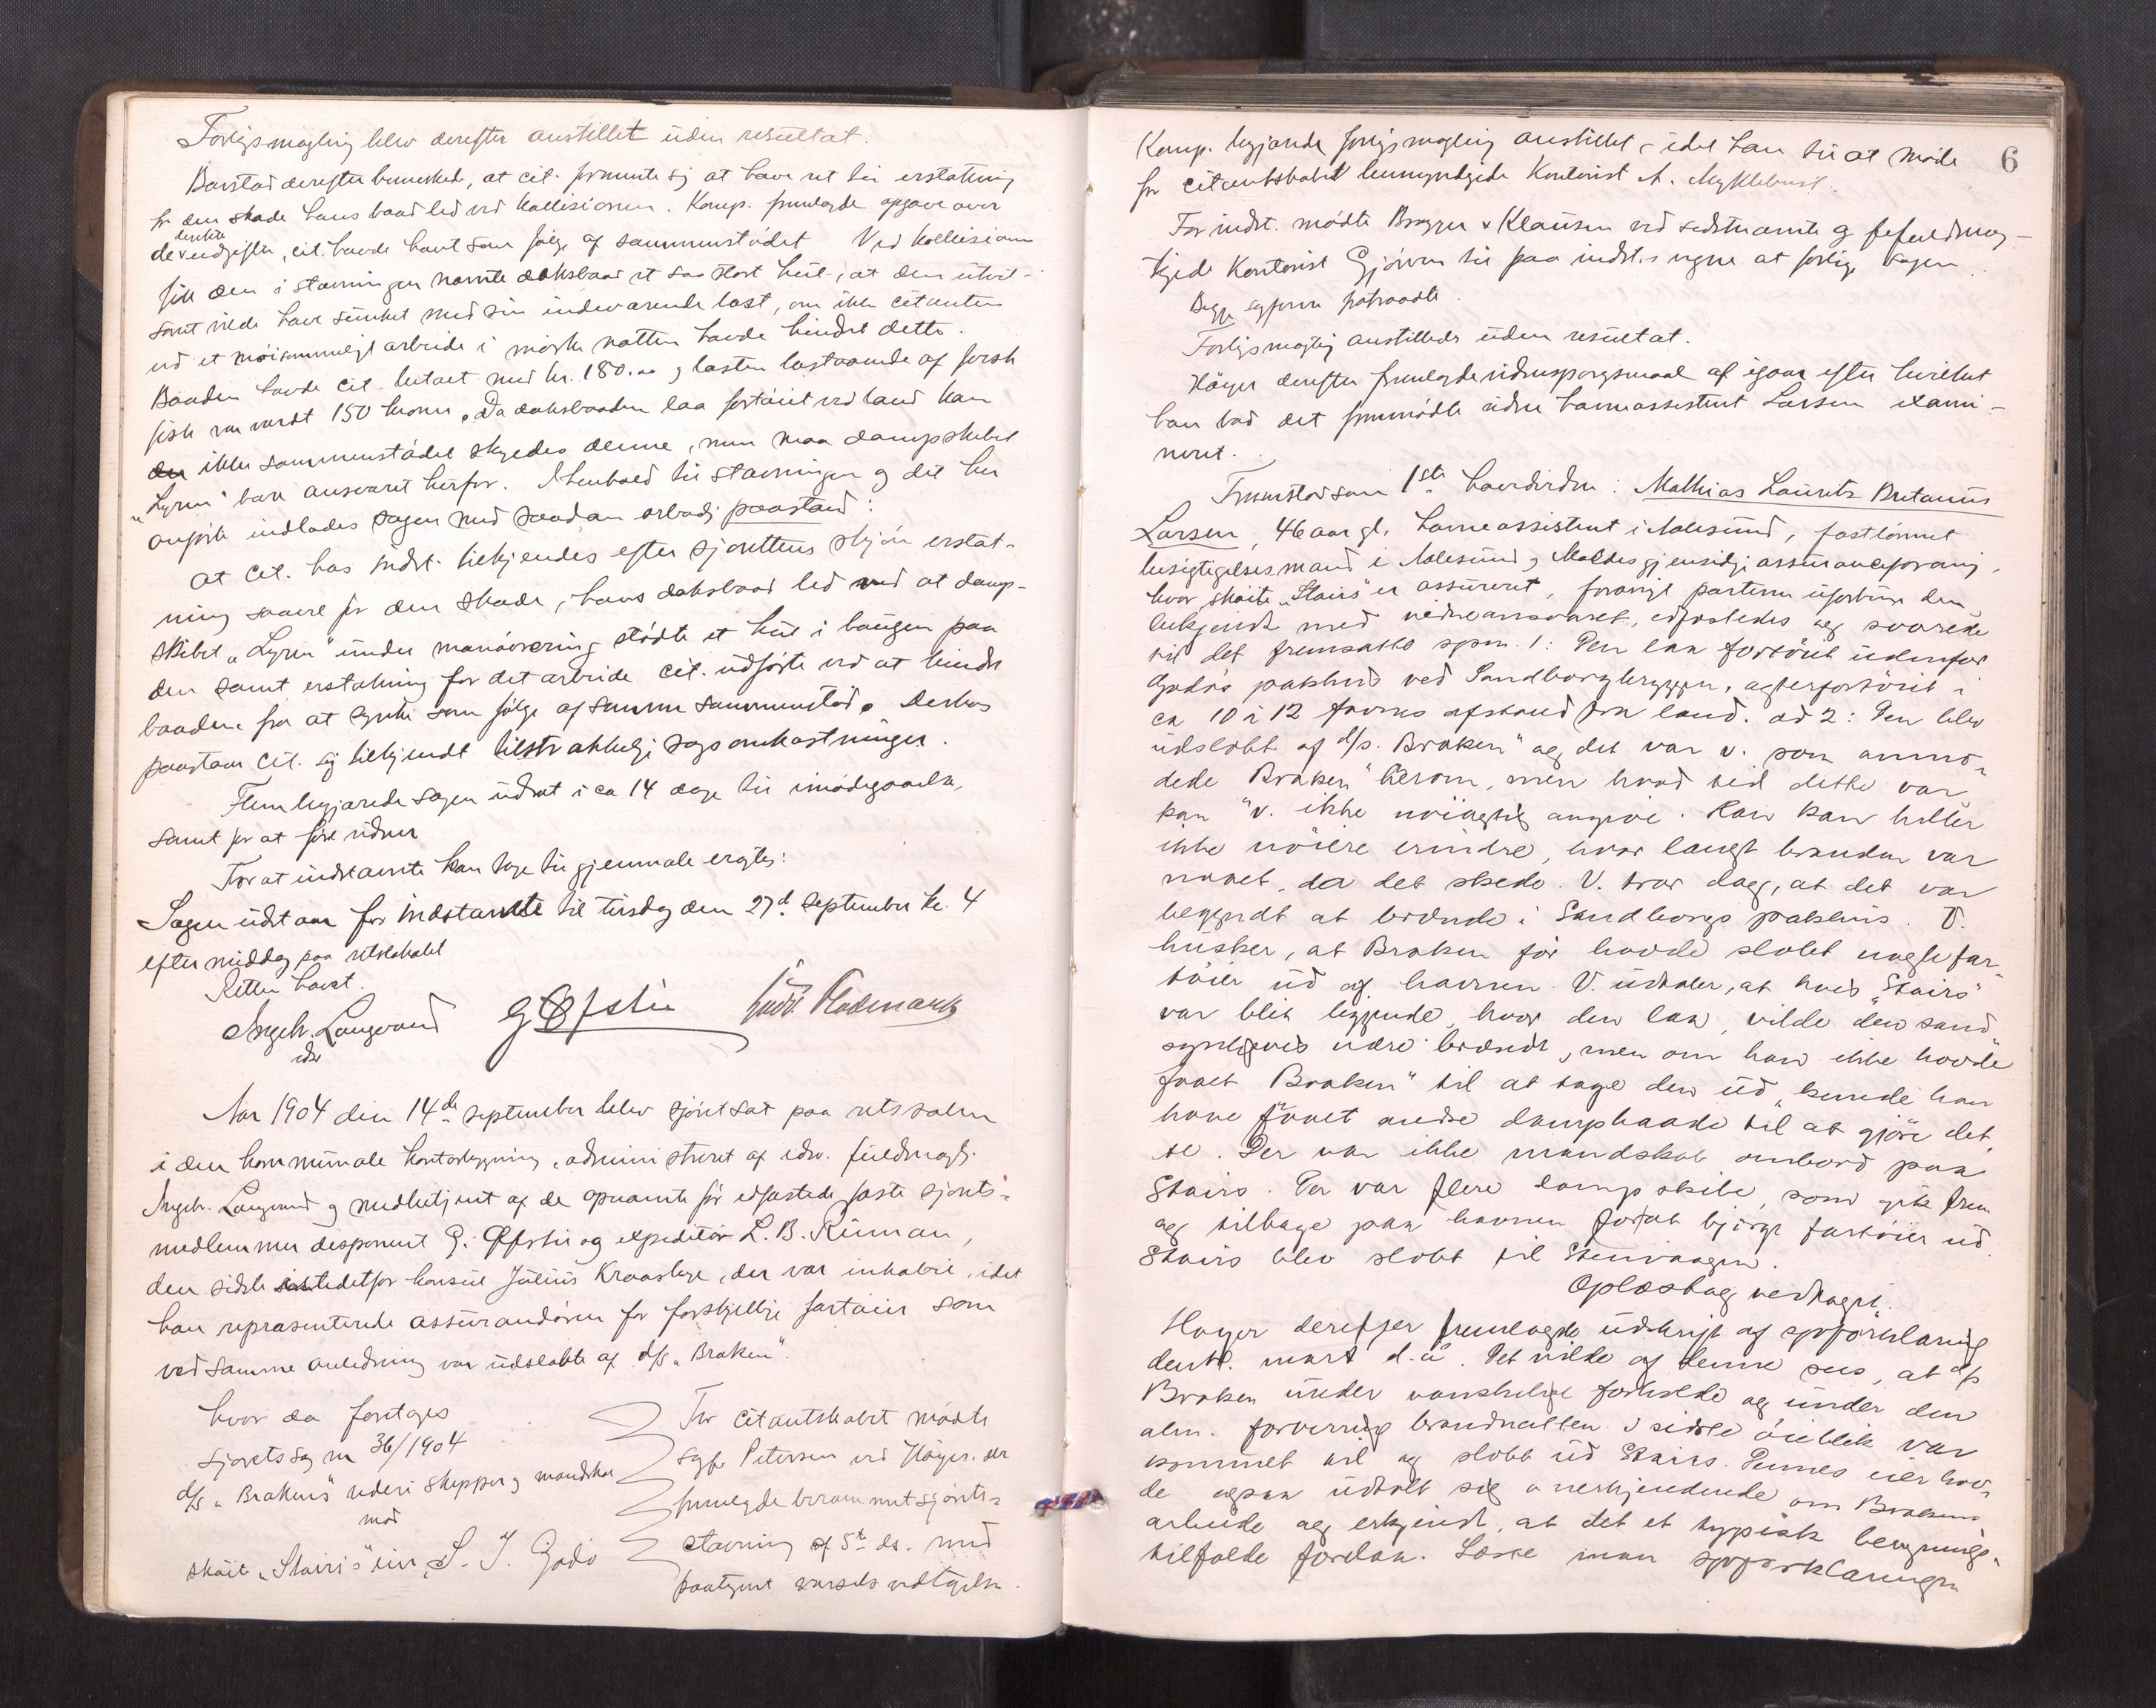 Forligsmægling blev derefter anstillet uden resultat.
Barstad derefter bemerked, at cit. formente sig at have ret til erstatning
for den skade hans baad led ved kollisionen. Komp. fremlagde opgave over
direkte
de udgifter, cit. havde havt som følge af sammenstødet. Ved kollisionen
fik den i stævningen nævnte dæksbaad et saa stort hul, at den utvil-
somt vilde have sunket med sin indeværende last, om ikke citanten
ved et møisommeligt arbeide i mørke natten havde hindret dette.
Baaden havde cit. betalt med kr. 180.00 og lasten bestaaende af fersk
fisk var værdt 150 kroner. Da dæksbaaden laa fortøiet ved land kan
der ikke sammenstødet skyldes denne, men maa dampskibet
"Lyren" bære ansvaret herfor. I henhold til stævningen og det her
anførte indlades sagen med saadan ærbødig paastand:
At cit. hos indst. tilkjendes efter sjørettens skjøn erstat-
ning saavel for den skade, hans dæksbaad led ved at damp-
skibet "Lyren" under manøvrering stødte et hul i baugen paa
den samt erstatning for det arbeide cit. udførte ved at hindre
baaden fra at synke som følge af samme sammenstød. Derhos
paastaar cit. sig tilkjendt tilstrækkelige sagsomkostninger.
Flem begjærede sagen udsat i ca 14 dage til imødegaaelse,
samt for at føre vidner
For at indstævnte kan tage til gjenmæle ergtes:
Sagen udstaar for indstævnte til tirsdag den 27d. september kl. 4
eftermiddag paa retslokalet
Retten hævet.
Ingebr. Langeland G Øfstie Gudv. Flodmark
edsv

Aar 1904 den 14de september blev sjøret sat paa retssalen
i den kommunale kontorbygning, administreret af edsv. fuldmægtig
Ingebr. Langeland og medbetjent af de opnævnte før edfæstede faste sjørets-
medlemmer disponent G. Øfstie og expeditør L. B. Riiman,
den sidste istedetfor konsul Julius Kraastye, der var inhabil, idet
han repræsenterede assurandøren for forskjellige fartøier som
ved samme anledning var udslæbte af d/s "Braken".
hvor da foretages
sjøretssag nr 36/1904
d/s "Braken"s rederi skipper og mandskab
mod
skøite "Stairs" eier, S. J. Godø
For citantskabet mødte
sagf. Petersen ved Høyer. der
fremlagde berammet sjørets-
stævning af 5te ds. med
paategnet varsels vedtagelse.

6
Komp. begjærede forligsmægling anstillet, idet han til at møde
for citantskabet bemyndigede Kontorist A. Myklebust.
For indst. mødte Brøgger & Klausen ved sidstnævnte og befuldmæg-
tigede Kontorist Gjørven til paa indst.s vegne at forlige sagen.
Begge sagførere fratraadte.
Forligsmægling anstilledes uden resultat.
Høyer derefter fremlagde vidnespørgsmaal af igaar efter hvilket
han bad det fremmødte vidne havneassistent Larsen exami-
neret.
Fremstod som 1ste hoveddvidne: Mathias Lauritz Bretanus
Larsen, 46 aar gl. havneassistent i Aalesund, fastlønnet
besigtigelsesmand i Aalesund og Moldes gjensidige assuranceforening,
hvor skøite "Stairs" er assureret, forøvrigt parterne uforbunden,
bekjendt med vidneansvaret, edfæstedes og svarede
til det fremsatte spm. 1: Den laa fortøiet udenfor
Godøs pakhus ved Sandborgbryggen, agterfortøiet i
ca 10 à 12 favnes afstand fra land. ad 2: Den blev
udslæbt af d/s. "Braken" og det var v. som anmo-
dede "Braken" herom, men hvad tid dette var
kan v. ikke nøiagtig angive. Han kan heller
ikke nøiere erindre, hvor langt branden var
naaet, da det skede. V. tror dog, at det var
begyndt at brænde i Sandborgs pakhus. V.
husker, at Braken før havde slæbt nogle far-
tøier ud af havnen. V. udtaler, at hvis "Stairs"
var blit liggende, hvor den laa, vilde den sand-
synligvis være brændt, men om han ikke havde
faaet "Braken" til at tage den ud, kunde han
have faaet andre dampbaade til at gjøre det-
te. Der var ikke mandskab ombord paa
Stairs. Der var flere dampskibe, som gik frem
og tilbage paa havnen forat bjerge fartøier ud.
Stairs blev slæbt til Steinvaagen.
Oplæst og vedtaget.
Høyer derefter fremlagde udskrift af sjøforklaring
dent. mart d. a. Det vilde af denne sees, at d/s
Braken under vanskelige forholde og under den
alm. forvirring brandnatten i sidste øieblik var
kommet til og slæbt ud Stairs. Dennes eier hav-
de ogsaa udtalt sig anerkjendende om Brakens
arbeide og erkjendt, at det et typisk bergnings-
tilfælde forelaa. Læste man sjøforklaringen